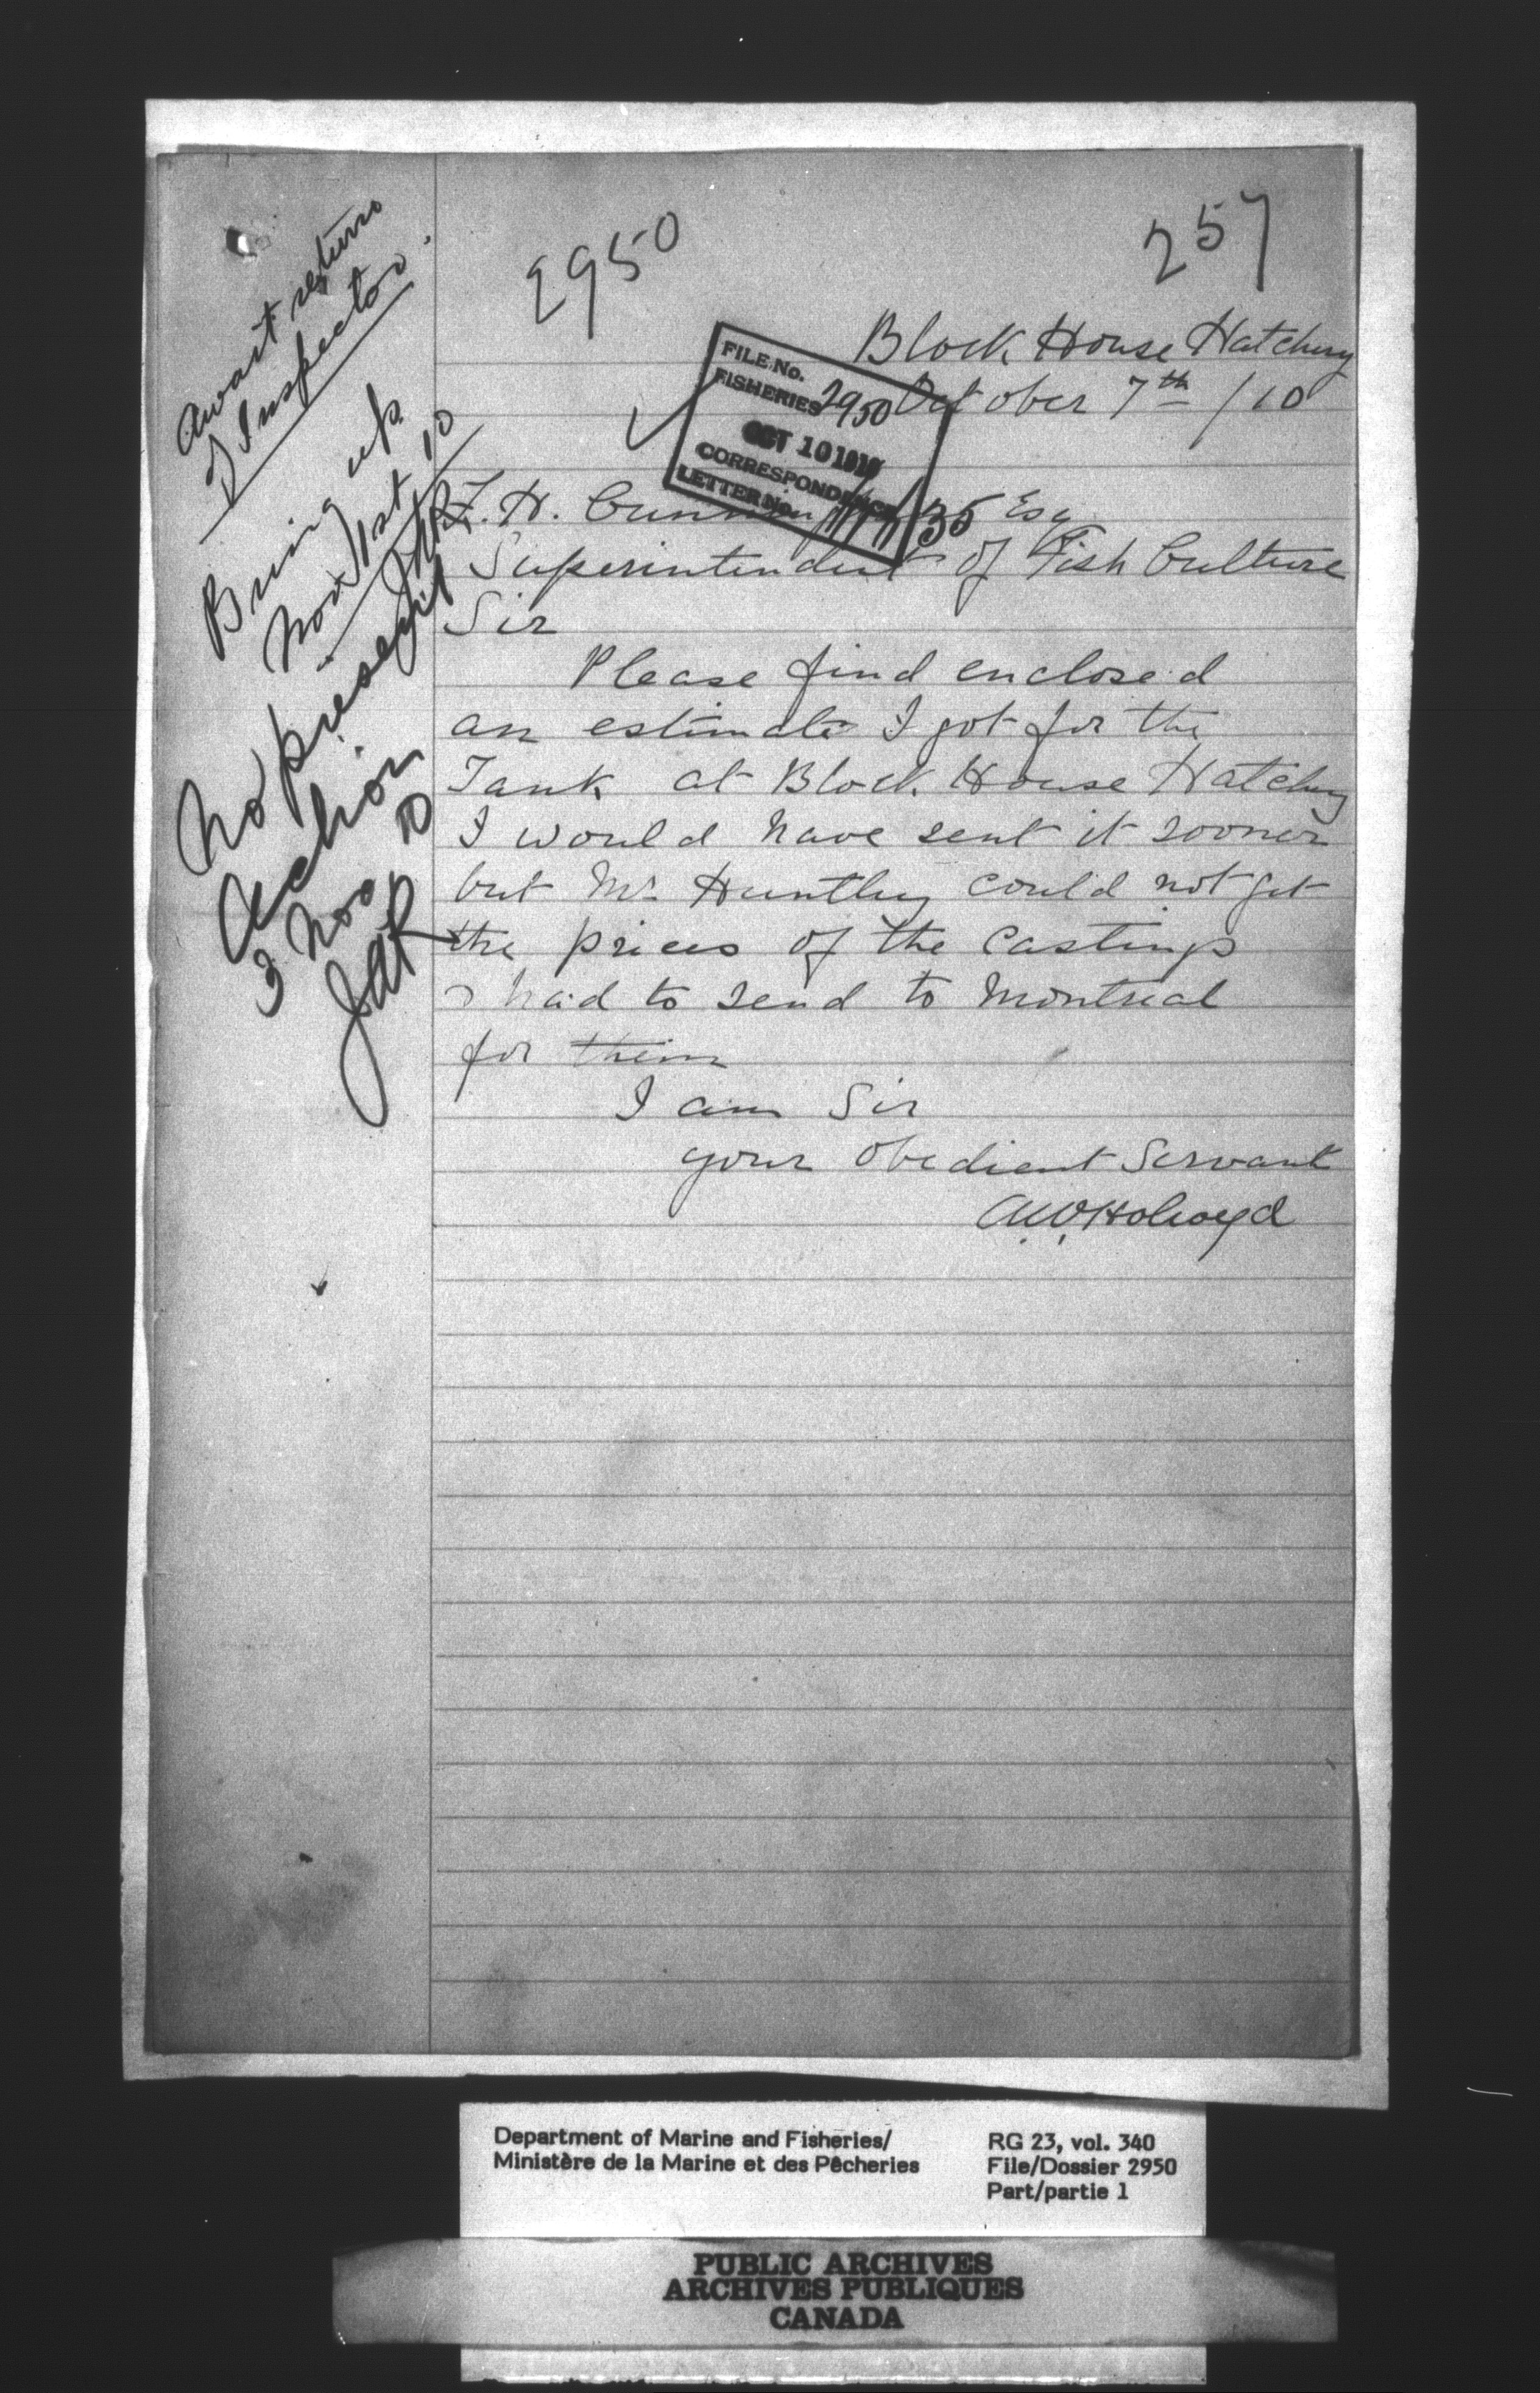 2950
257
Block House Hatchery
October 7th /10
FILE No.
FISHERIES 2950
OCT 10 1910
CORRESPONDENCE
LETTER No.
35
F. H. Cunningham Esq
Superintendent of Fish Culture
Sir
Please find enclosed
an estimate I got for the
Tank at Block House Hatchery
I would have sent it sooner
but Mr Huntley could not get
the prices of the Castings
had to send to Montreal
for them
I am Sir
your obedient Servant
A.W. Holroyd
await return
of Inspector.
Bring up
Nov 1st 10
No present
action
3 Nov 10
JAR
Department of Marine and Fisheries/
Ministère de la Marine et des Pêcheries
RG 23, vol. 340
File/Dossier 2950
Part/partie 1
PUBLIC ARCHIVES
ARCHIVES PUBLIQUES
CANADA